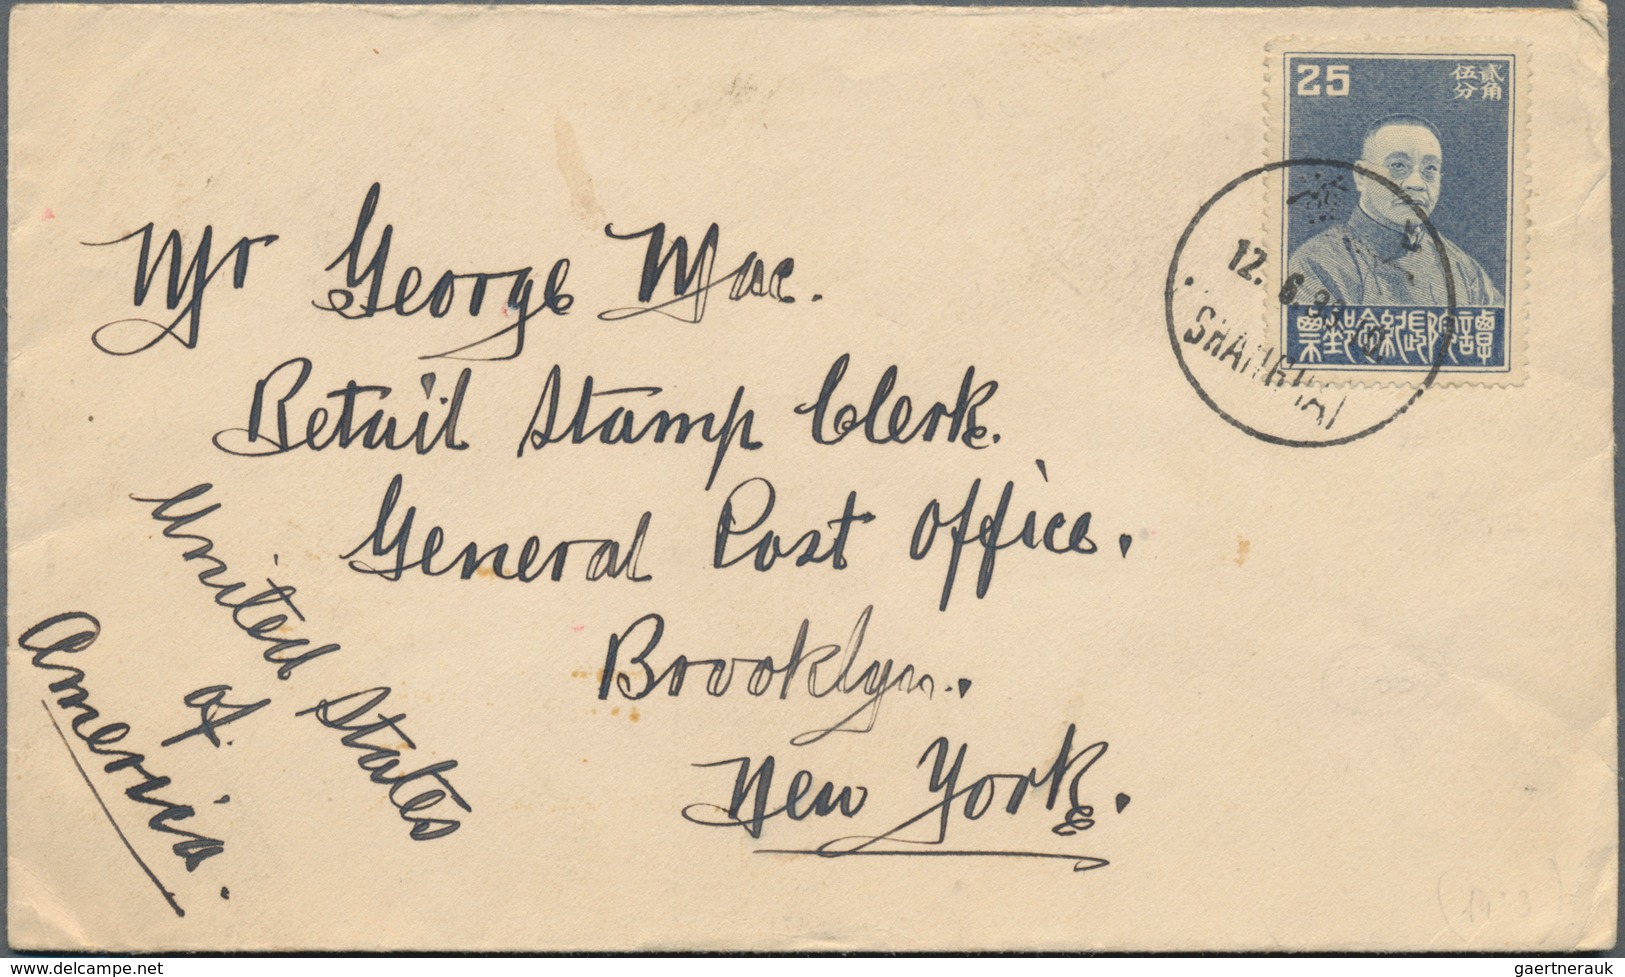 25
貳角
伍分
12. 6. 33
SHANGHAI
譚院長紀念郵票
Mr George Mac.
Retail Stamp Clerk.
General Post Office.
Brooklyn.
New York.
United States
of
America.
www.delcampe.net
gaertnerauk